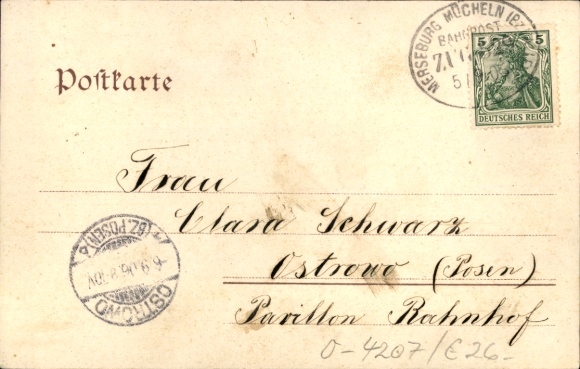 MERSEBURG MÜCHELN (BZ
BAHNPOST
ZUG
5
5 5
DEUTSCHES REICH
Postkarte
Frau
Clara Schwarz
Ostrowo (Posen)
Pavillon Bahnhof
(BZ. POSEN)
6.9.06
OSTROWO
0-4207/E26-